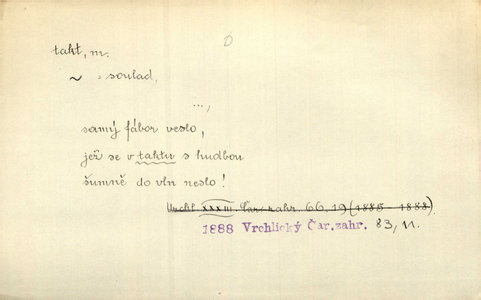 D
takt, m.
~ = soulad,
...,
samý fábor veslo,
jež se v taktu s hudbou
šumně do vln neslo!
Vrchl. XXXIII. Čar. zahr. 66, 19 (1885 - 1888).
1888 Vrchlický Čar. zahr. 83, 11.